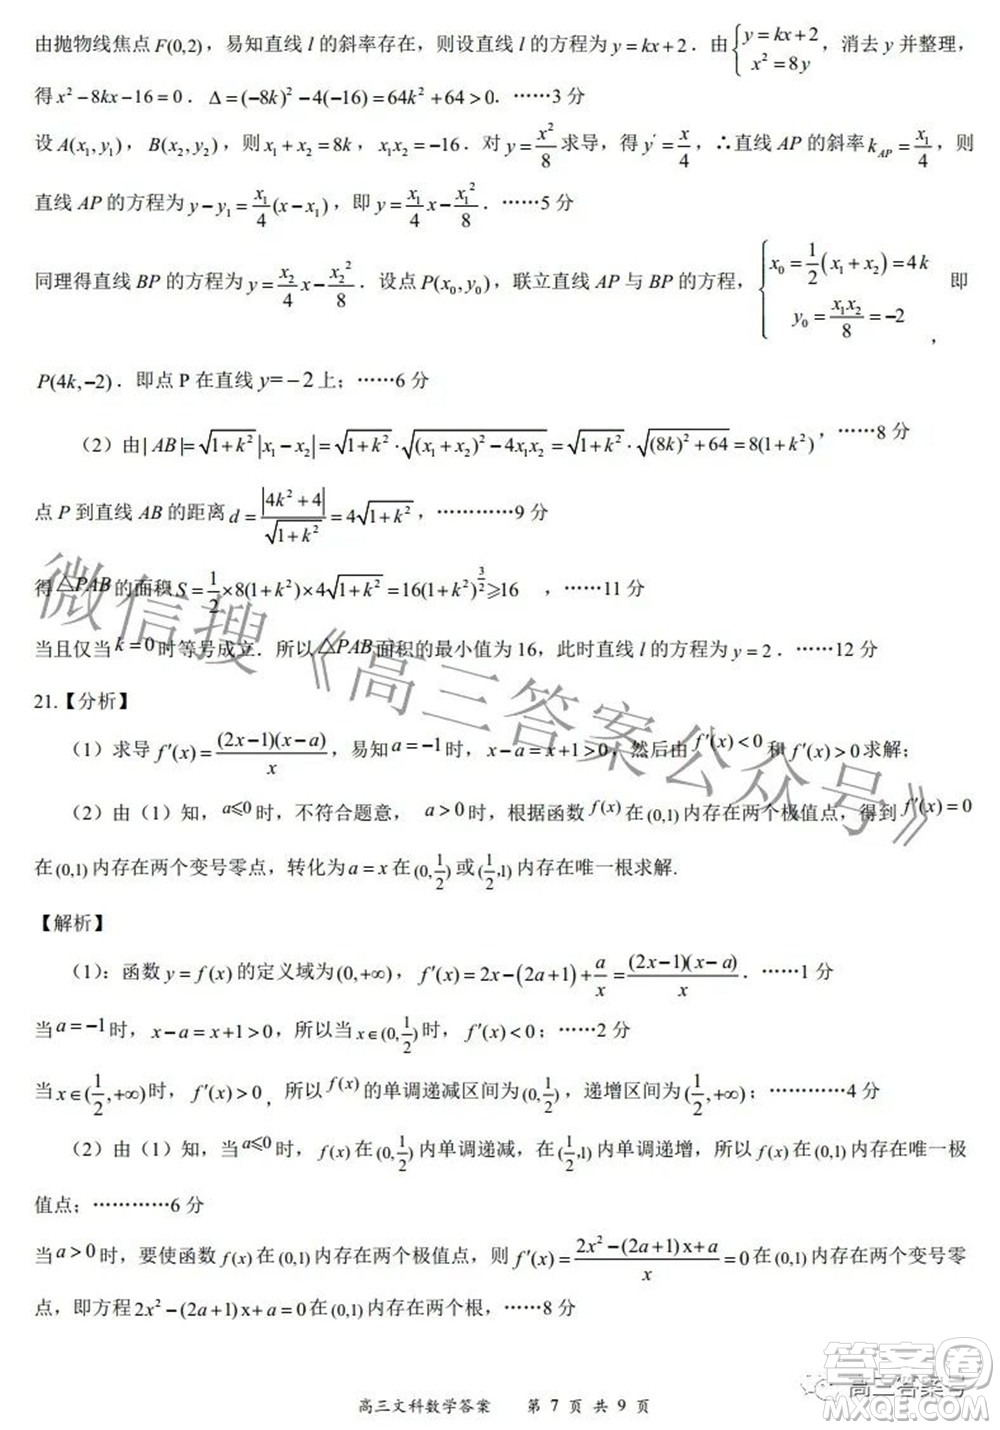 由抛物线焦点 F(0,2)，易知直线 l 的斜率存在，则设直线 l 的方程为 y=kx+2．由{y=kx+2, x²=8y，消去 y 并整理，
得 x²−8kx−16=0．Δ=(−8k)²−4(−16)=64k²+64>0．……3 分
设 A(x₁,y₁)，B(x₂,y₂)，则 x₁+x₂=8k，x₁x₂=−16．对 y=x²/8 求导，得 y′=x/4，∴直线 AP 的斜率 k_AP=x₁/4，则
直线 AP 的方程为 y−y₁=x₁/4(x−x₁)，即 y=x₁/4 x−x₁²/8．……5 分
同理得直线 BP 的方程为 y=x₂/4 x−x₂²/8．设点 P(x₀,y₀)，联立直线 AP 与 BP 的方程，{x₀=1/2(x₁+x₂)=4k, y₀=x₁x₂/8=−2，即
P(4k,−2)．即点 P 在直线 y=−2 上；……6 分
（2）由|AB|=√(1+k²)|x₁−x₂|=√(1+k²)·√((x₁+x₂)²−4x₁x₂)=√(1+k²)·√((8k)²+64)=8(1+k²)，……8 分
点 P 到直线 AB 的距离 d=|4k²+4|/√(1+k²)=4√(1+k²)，…………9 分
得△PAB的面积 S=1/2×8(1+k²)×4√(1+k²)=16(1+k²)^(3/2)⩾16，……11 分
当且仅当 k=0 时等号成立．所以△PAB面积的最小值为 16，此时直线 l 的方程为 y=2．……12 分
21.【分析】
（1）求导 f′(x)=(2x−1)(x−a)/x，易知 a=−1 时，x−a=x+1>0，然后由 f′(x)<0 和 f′(x)>0 求解；
（2）由（1）知，a⩽0 时，不符合题意， a>0 时，根据函数 f(x) 在 (0,1) 内存在两个极值点，得到 f′(x)=0
在 (0,1) 内存在两个变号零点，转化为 a=x 在 (0,1/2) 或 (1/2,1) 内存在唯一根求解.
【解析】
（1）：函数 y=f(x) 的定义域为 (0,+∞)，f′(x)=2x−(2a+1)+a/x=(2x−1)(x−a)/x．……1 分
当 a=−1 时，x−a=x+1>0，所以当 x∈(0,1/2) 时，f′(x)<0；……2 分
当 x∈(1/2,+∞) 时，f′(x)>0，所以 f(x) 的单调递减区间为 (0,1/2)，递增区间为 (1/2,+∞)；…………4 分
（2）由（1）知，当 a⩽0 时，f(x) 在 (0,1/2) 内单调递减，在 (1/2,1) 内单调递增，所以 f(x) 在 (0,1) 内存在唯一极
值点；…………6 分
当 a>0 时，要使函数 f(x) 在 (0,1) 内存在两个极值点，则 f′(x)=2x²−(2a+1)x+a/x=0 在 (0,1) 内存在两个变号零
点，即方程 2x²−(2a+1)x+a=0 在 (0,1) 内存在两个根，……8 分
高三文科数学答案 第 7 页 共 9 页
微信搜《高三答案公众号》
高三答案号
答案圈
MXQE.COM